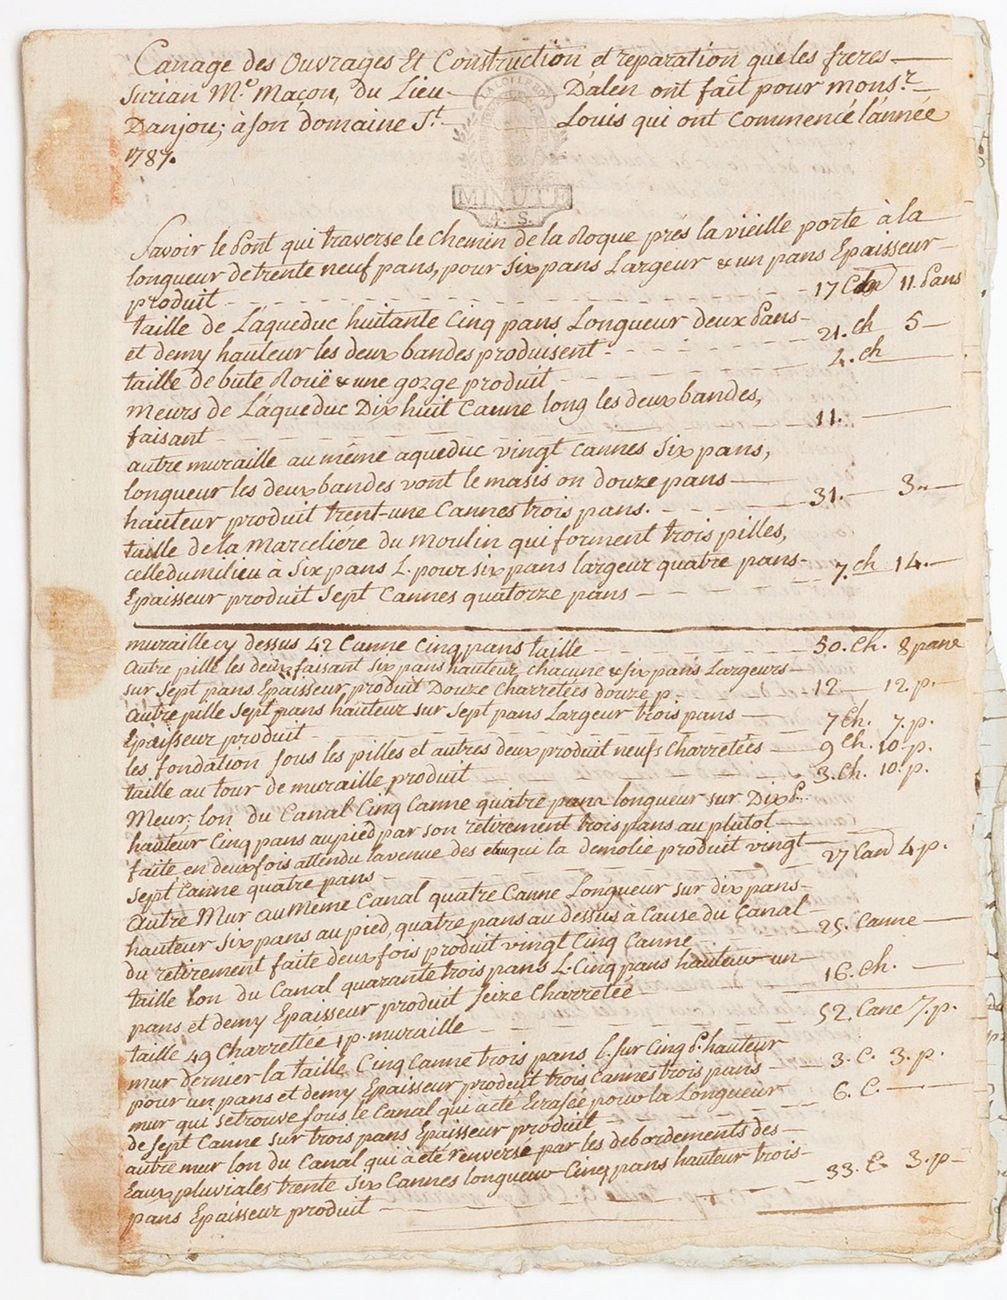 Canage des Ouvrages Et Construction et reparation que les freres
Surian M.e maçon, du Lieu Dalen ont fait pour mons.r
Danjou; à son domaine S.t Louis qui ont Commencé l'année
1787.
MINUTE
4. S.
Savoir le Pont qui traverse le Chemin de la Roque prés la vieille porte à la
longueur de trente neuf pans, pour six pans Largeur & un pans Epaisseur
produit 17 11. Pans
taille de L'aqueduc huitante Cinq pans Longueur deux Pans
et demy hauteur les deux bandes produisent 21. ch 5
taille de bute Roüe & une gorge produit 4. ch
meurs de L'aqueduc Dix huit Canne long les deux bandes,
faisant 11.
autre muraille au même aqueduc vingt Cannes six pans,
longueur les deux bandes vont le masis on douze pans
hauteur produit trent-une Cannes trois pans. 31. 3
taille de la Marceliére du moulin qui forment trois pilles,
celle du milieu à six pans L. pour six pans largeur quatre pans
Epaisseur produit Sept Cannes quatorze pans 7. ch 14.
muraille cy dessus 42 Canne Cinq pans taille 50. Ch. 8 pans
Autre pille les deux faisant six pans hauteur, chacune & six pans Largeurs
sur Sept pans Epaisseur, produit Douze Charretées douze p. 12 12. p.
Autre pille Sept pans hauteur sur Sept pans Largeur trois pans
Epaisseur produit 7 Ch. 7. p.
les fondation sous les pilles et autres deux produit neufs Charretées 9 Ch. 10. p.
taille au tour de muraille, produit 3. Ch. 10. p.
Meur, lon du Canal Cinq Canne quatre pans longueur sur Dix P.
hauteur Cinq pans au pied par son retirement trois pans au plutot
faite, en deux fois attendu lavenue des eau qui la demolie produit vingt
Sept Canne quatre pans 27 Can 4 p.
Autre Mur au Même Canal quatre Canne Longueur sur dix pans
hauteur Six pans au pied, quatre pans au dessus à Cause du Canal
du retirement faite deux fois produit vingt Cinq Canne 25. Canne
taille lon du Canal quarante trois pans L. Cinq pans hauteur un
pans et demy Epaisseur produit Seize Charretée 16. Ch.
taille 49 Charrettée 1 p. muraille 52. Cane 7. p.
mur dernier la taille Cinq Canne trois pans l. sur Cinq P. hauteur
pour un pans et demy Epaisseur produit trois Cannes trois pans 3. C. 3. p.
mur qui se trouve sous le Canal qui a été Ecrasée pour la Longueur
de Sept Canne sur trois pans Epaisseur produit 6. C.
autre mur lon du Canal qui a été renversé par les debordements des
Eaux pluviales trente Six Cannes longueur Cinq pans hauteur trois
pans Epaisseur produit 33. C 3. p